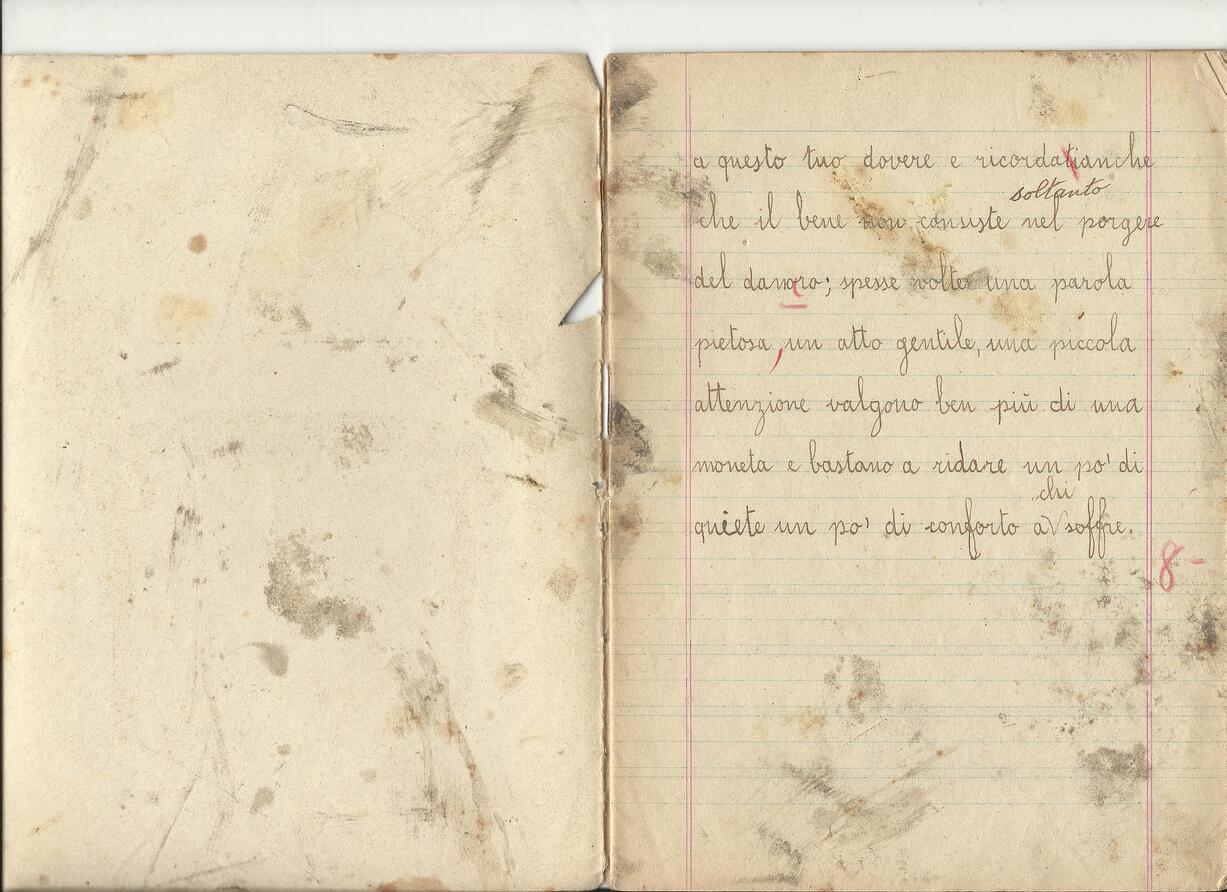 a questo tuo dovere e ricordatianche
soltanto
che il bene non consiste nel porgere
del danaro; spesse volte una parola
pietosa, un atto gentile, una piccola
attenzione valgono ben più di una
moneta e bastano a ridare un po' di
chi
quiete un po' di conforto a soffre.
8-